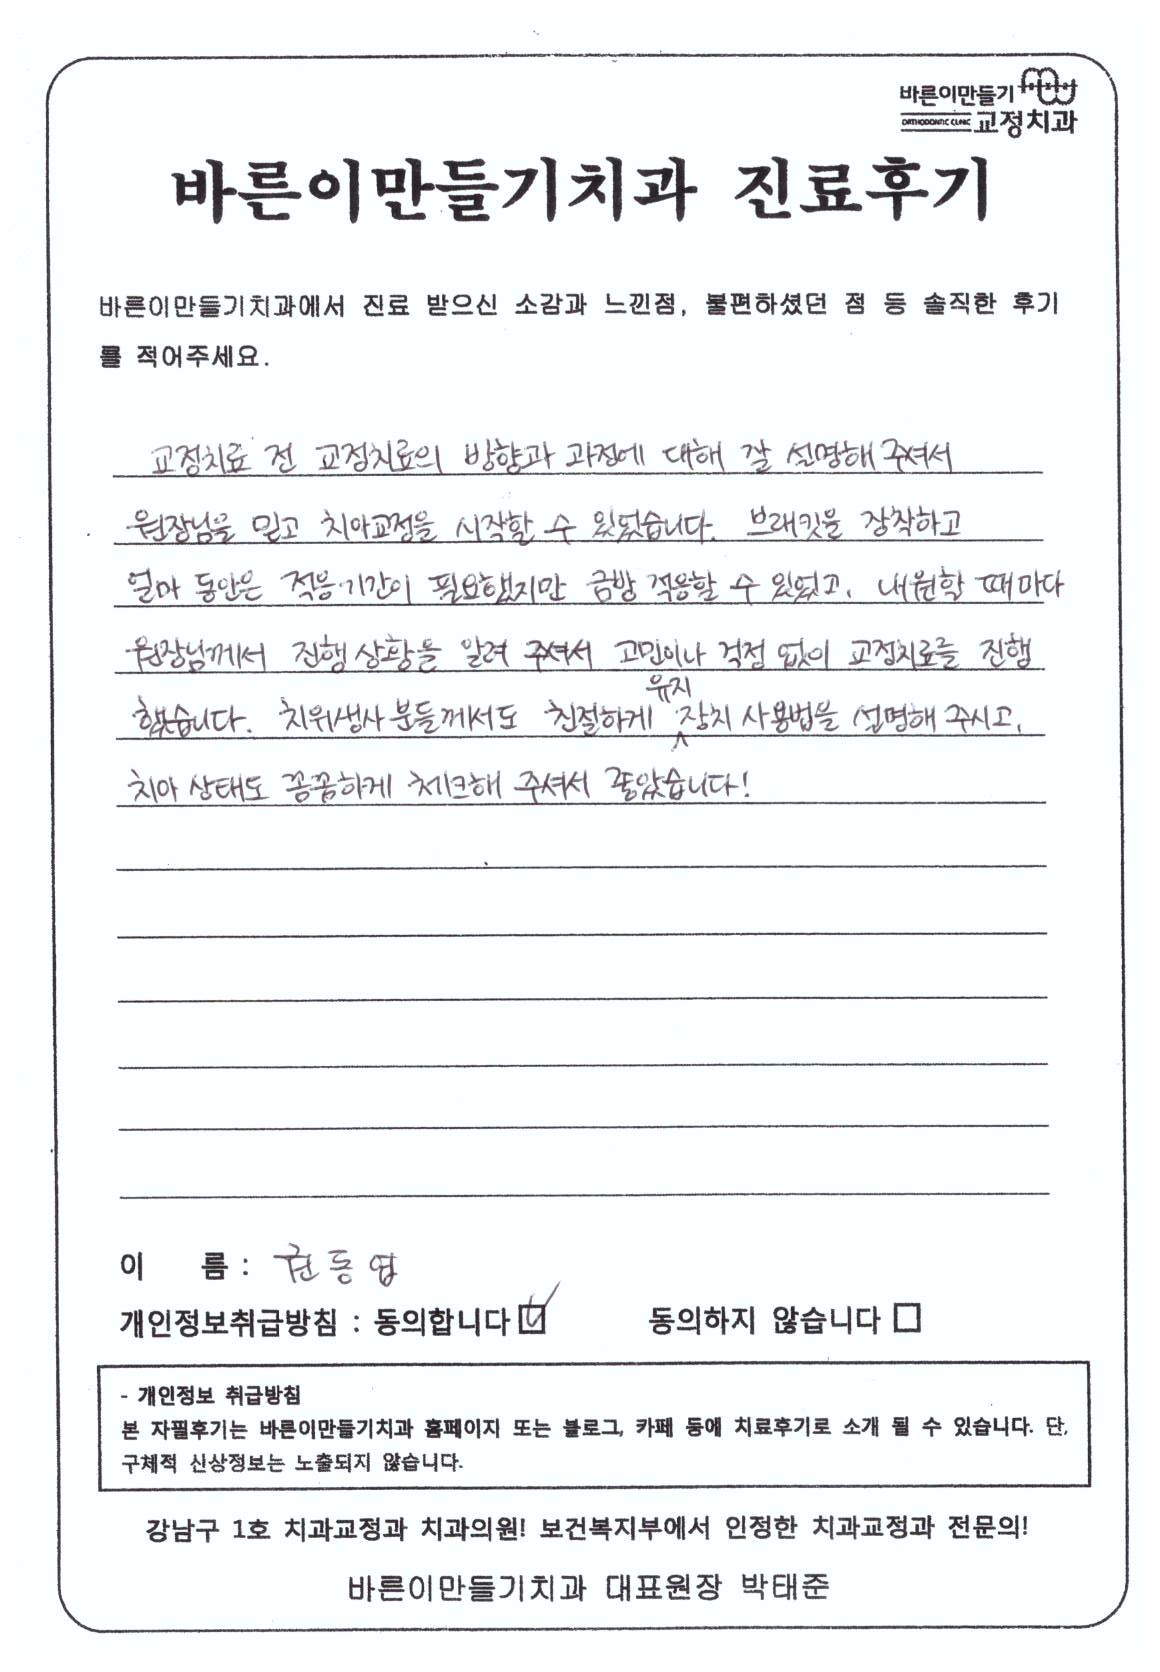 바른이만들기
ORTHODONTIC CLINIC 교정치과
바른이만들기치과 진료후기
바른이만들기치과에서 진료 받으신 소감과 느낀점, 불편하셨던 점 등 솔직한 후기
를 적어주세요.
교정치료 전 교정치료의 방향과 과정에 대해 잘 설명해 주셔서
원장님을 믿고 치아교정을 시작할 수 있었습니다. 브래킷을 장착하고
얼마 동안은 적응기간이 필요했지만 금방 적응할 수 있었고, 내원할 때마다
원장님께서 진행 상황을 알려 주셔서 고민이나 걱정 없이 교정치료를 진행
했습니다. 치위생사 분들께서도 친절하게 유지장치 사용법을 설명해 주시고,
치아 상태도 꼼꼼하게 체크해 주셔서 좋았습니다!
이 름 : 권동엽
개인정보취급방침 : 동의합니다 동의하지 않습니다
- 개인정보 취급방침
본 자필후기는 바른이만들기치과 홈페이지 또는 블로그, 카페 등에 치료후기로 소개 될 수 있습니다. 단,
구체적 신상정보는 노출되지 않습니다.
강남구 1호 치과교정과 치과의원! 보건복지부에서 인정한 치과교정과 전문의!
바른이만들기치과 대표원장 박태준